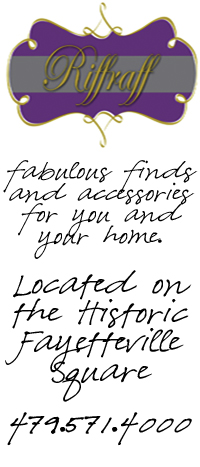 Riffraff
fabulous finds
and accessories
for you and
your home.
Located on
the Historic
Fayetteville
Square
479.571.4000